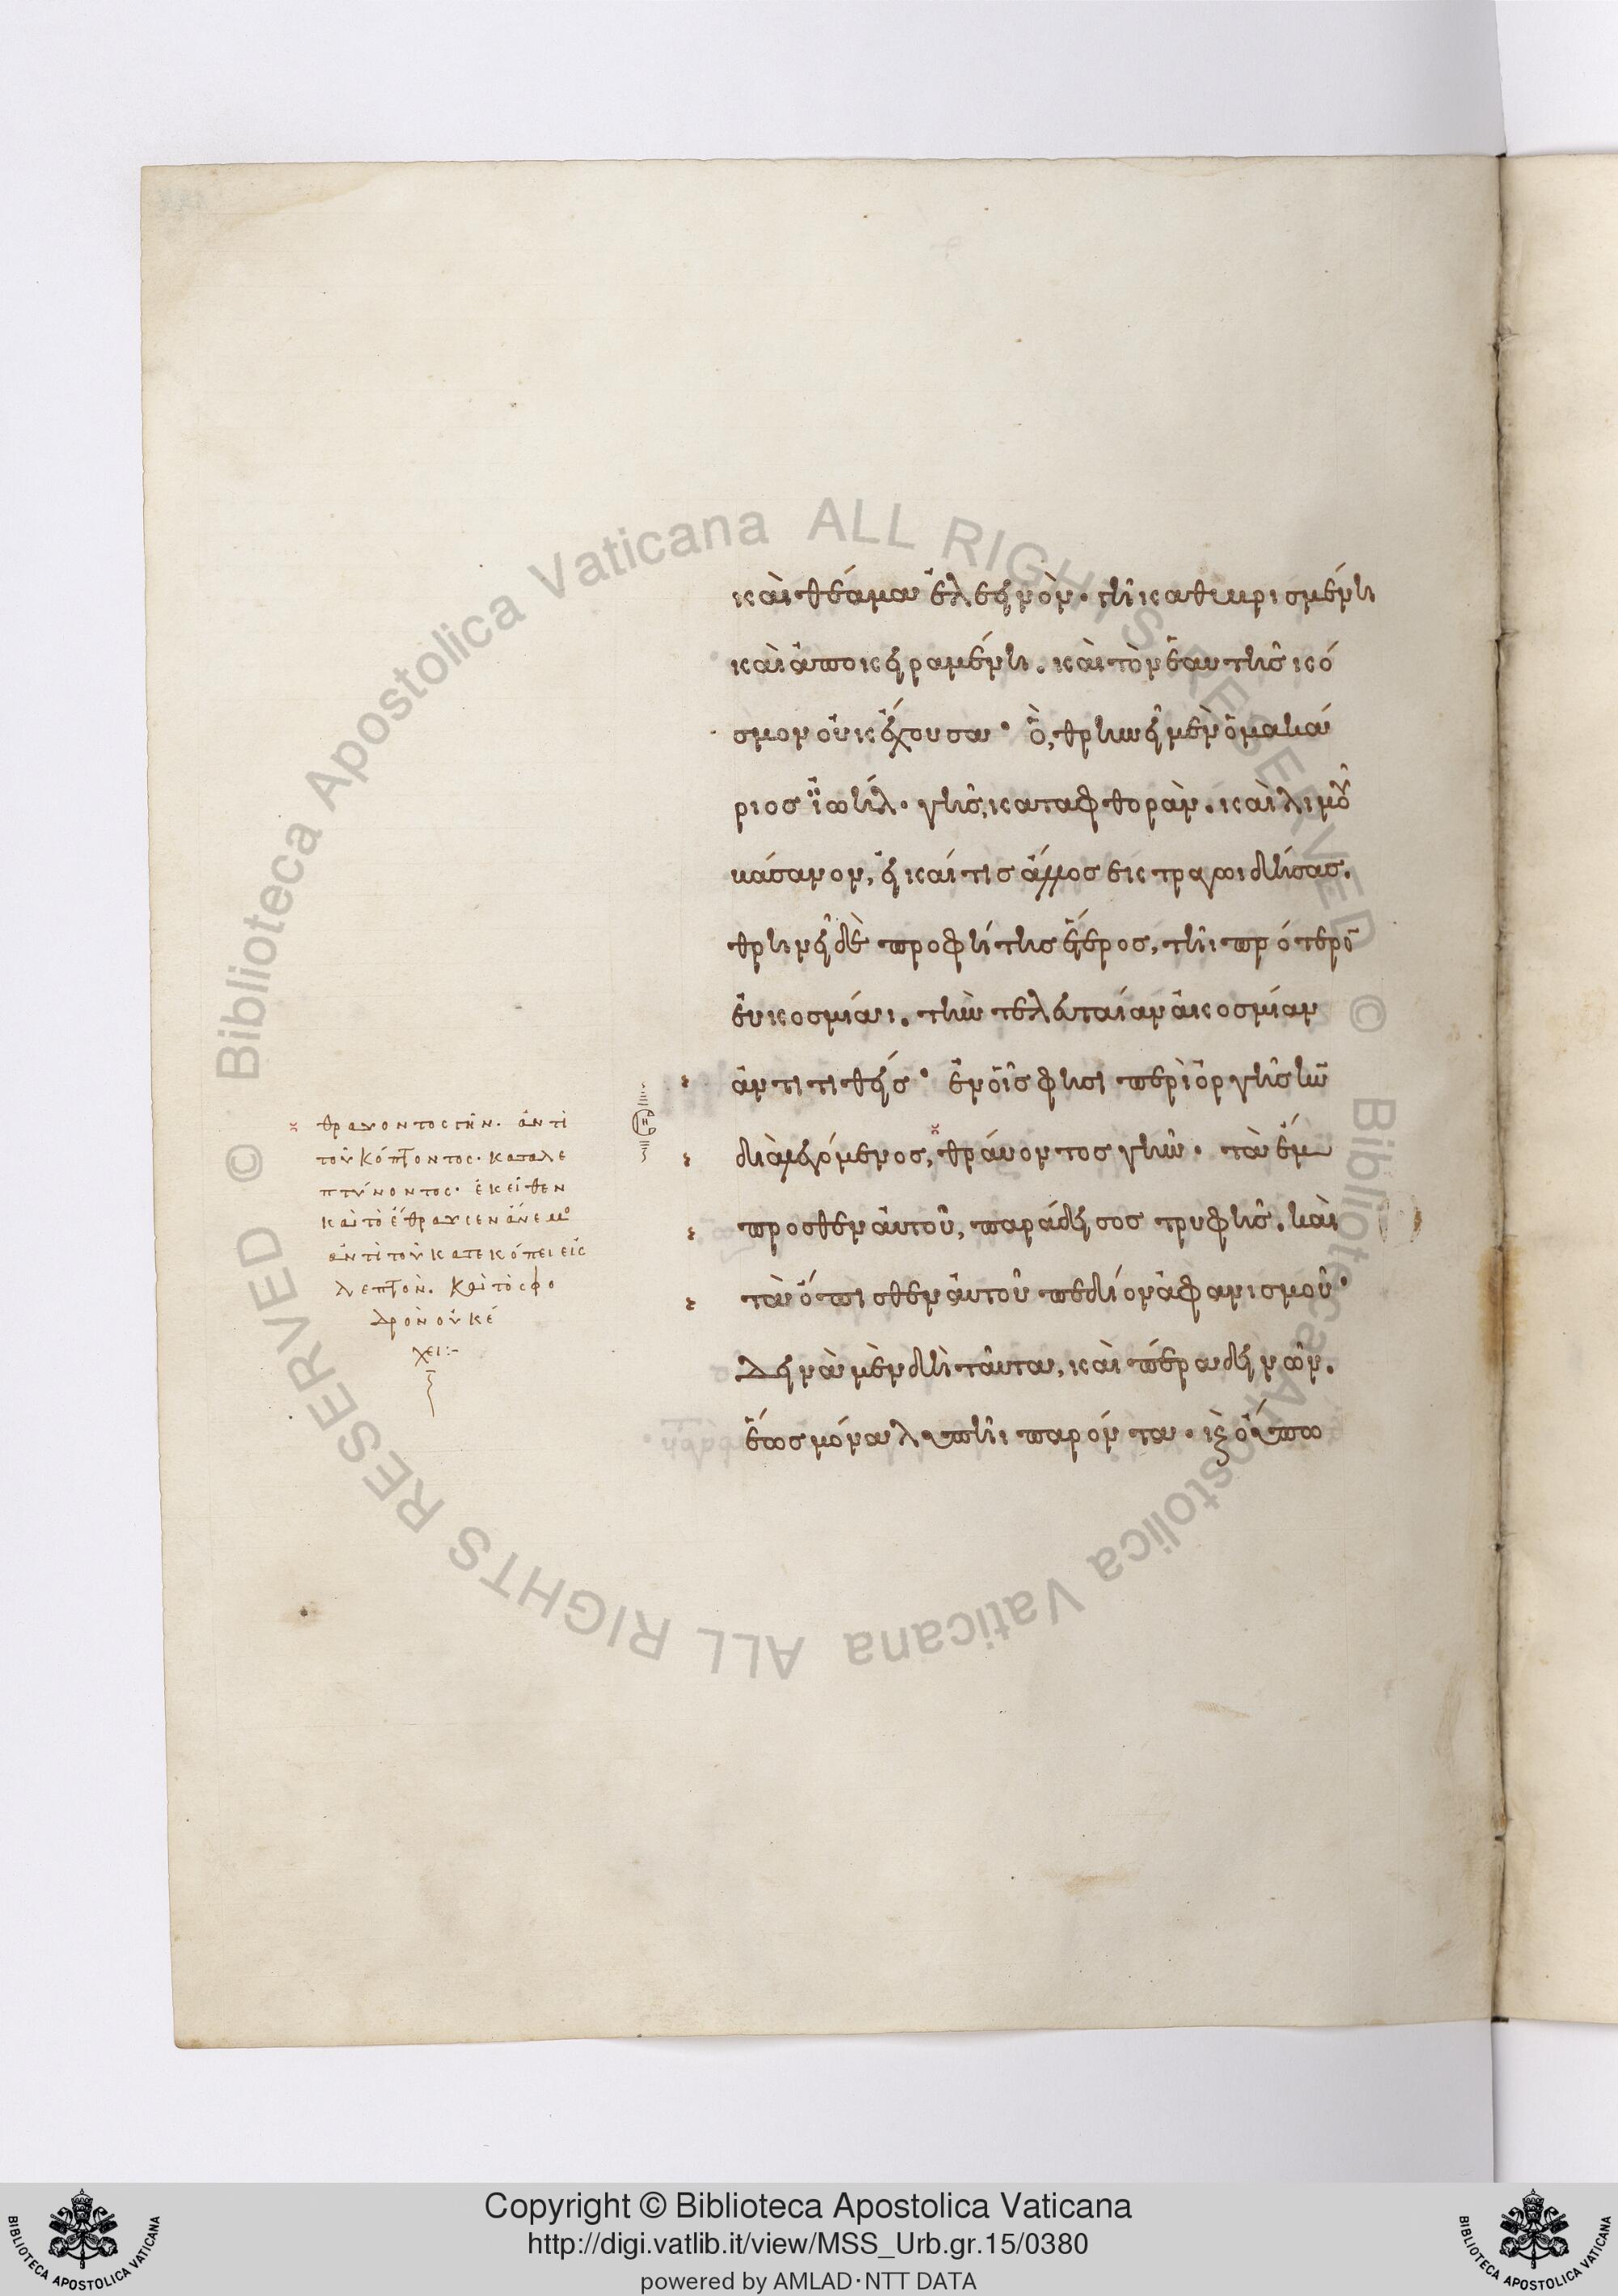 καὶ θέαμα ἐλεεινὸν· γῆ κατεψιρισμένη
καὶ ἀποκειραμένη. καὶ τὸν ἑαυτῆς κό
σμον οὐκ ἔχουσα· ὃ, θρηνεῖ μὲν ὁ μακά
ριος ἰωήλ· γῆς, καταφθορὰν. καὶ λιμοῦ
βάσανον, εἰ καί τις ἄλλος ἐκτραγωιδήσας.
θρηνεῖ δὲ προφήτης ἕτερος, τῆι προτέρα
εὐκοσμίαι. τὴν τελευταίαν ἀκοσμίαν
ἀντιτιθείς· ἐν οἷς φησι περὶ ὀργῆς κυ
διαλεγόμενος, θραύοντος γῆν· τὰ ἔμ
προσθεν αὐτοῦ, παράδεισος τρυφῆς. καὶ
τὰ ὄπισθεν αὐτοῦ πεδίον ἀφανισμοῦ·
Δεινὰ μὲν δὴ ταῦτα, καὶ πέρα δεινῶν.
ἕως μόνα λυπῆι παρόντα· καὶ οὔπω
θραύοντος γῆν· ἀντὶ
τοῦ κόπτοντος· καταλε
πτύνοντος· ἐκεῖθεν
καὶ τὸ ἔθραυσεν ἄνεμο
ἀντὶ τοῦ κατεκόπει εἰς
λεπτὸν. Καὶ τὸ σφο
δρὸν οὐκ έ
χει:-
Copyright © Biblioteca Apostolica Vaticana
http://digi.vatlib.it/view/MSS_Urb.gr.15/0380
powered by AMLAD·NTT DATA
BIBLIOTECA APOSTOLICA VATICANA
BIBLIOTECA APOSTOLICA VATICANA
© Biblioteca Apostolica Vaticana ALL RIGHTS RESERVED
© Biblioteca Apostolica Vaticana ALL RIGHTS RESERVED